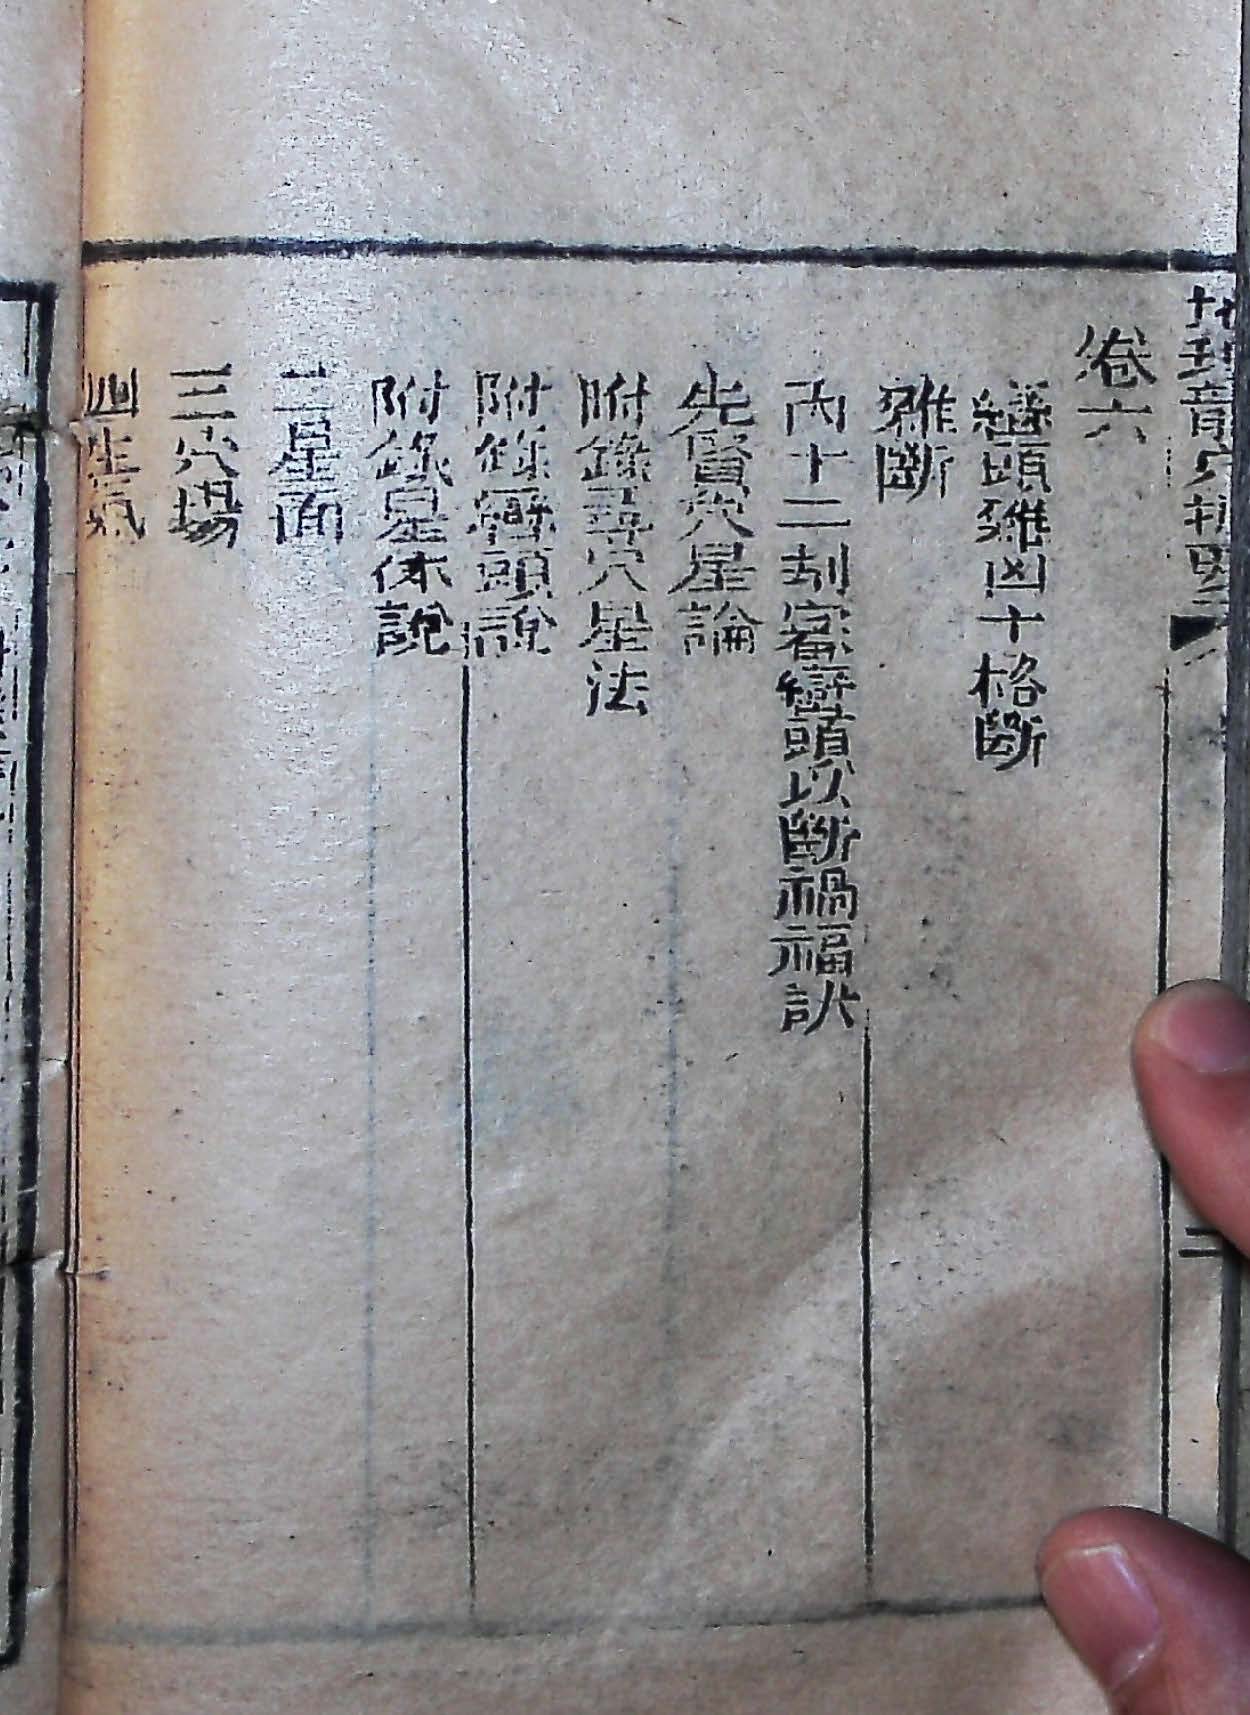 地理龍穴
二
卷六
巒頭雜凶十格斷
雜斷
十二審巒頭以斷禍福訣
先賢穴星論
附錄尋穴星法
附錄巒頭說
附錄星体說
二星面
三穴場
四生氣